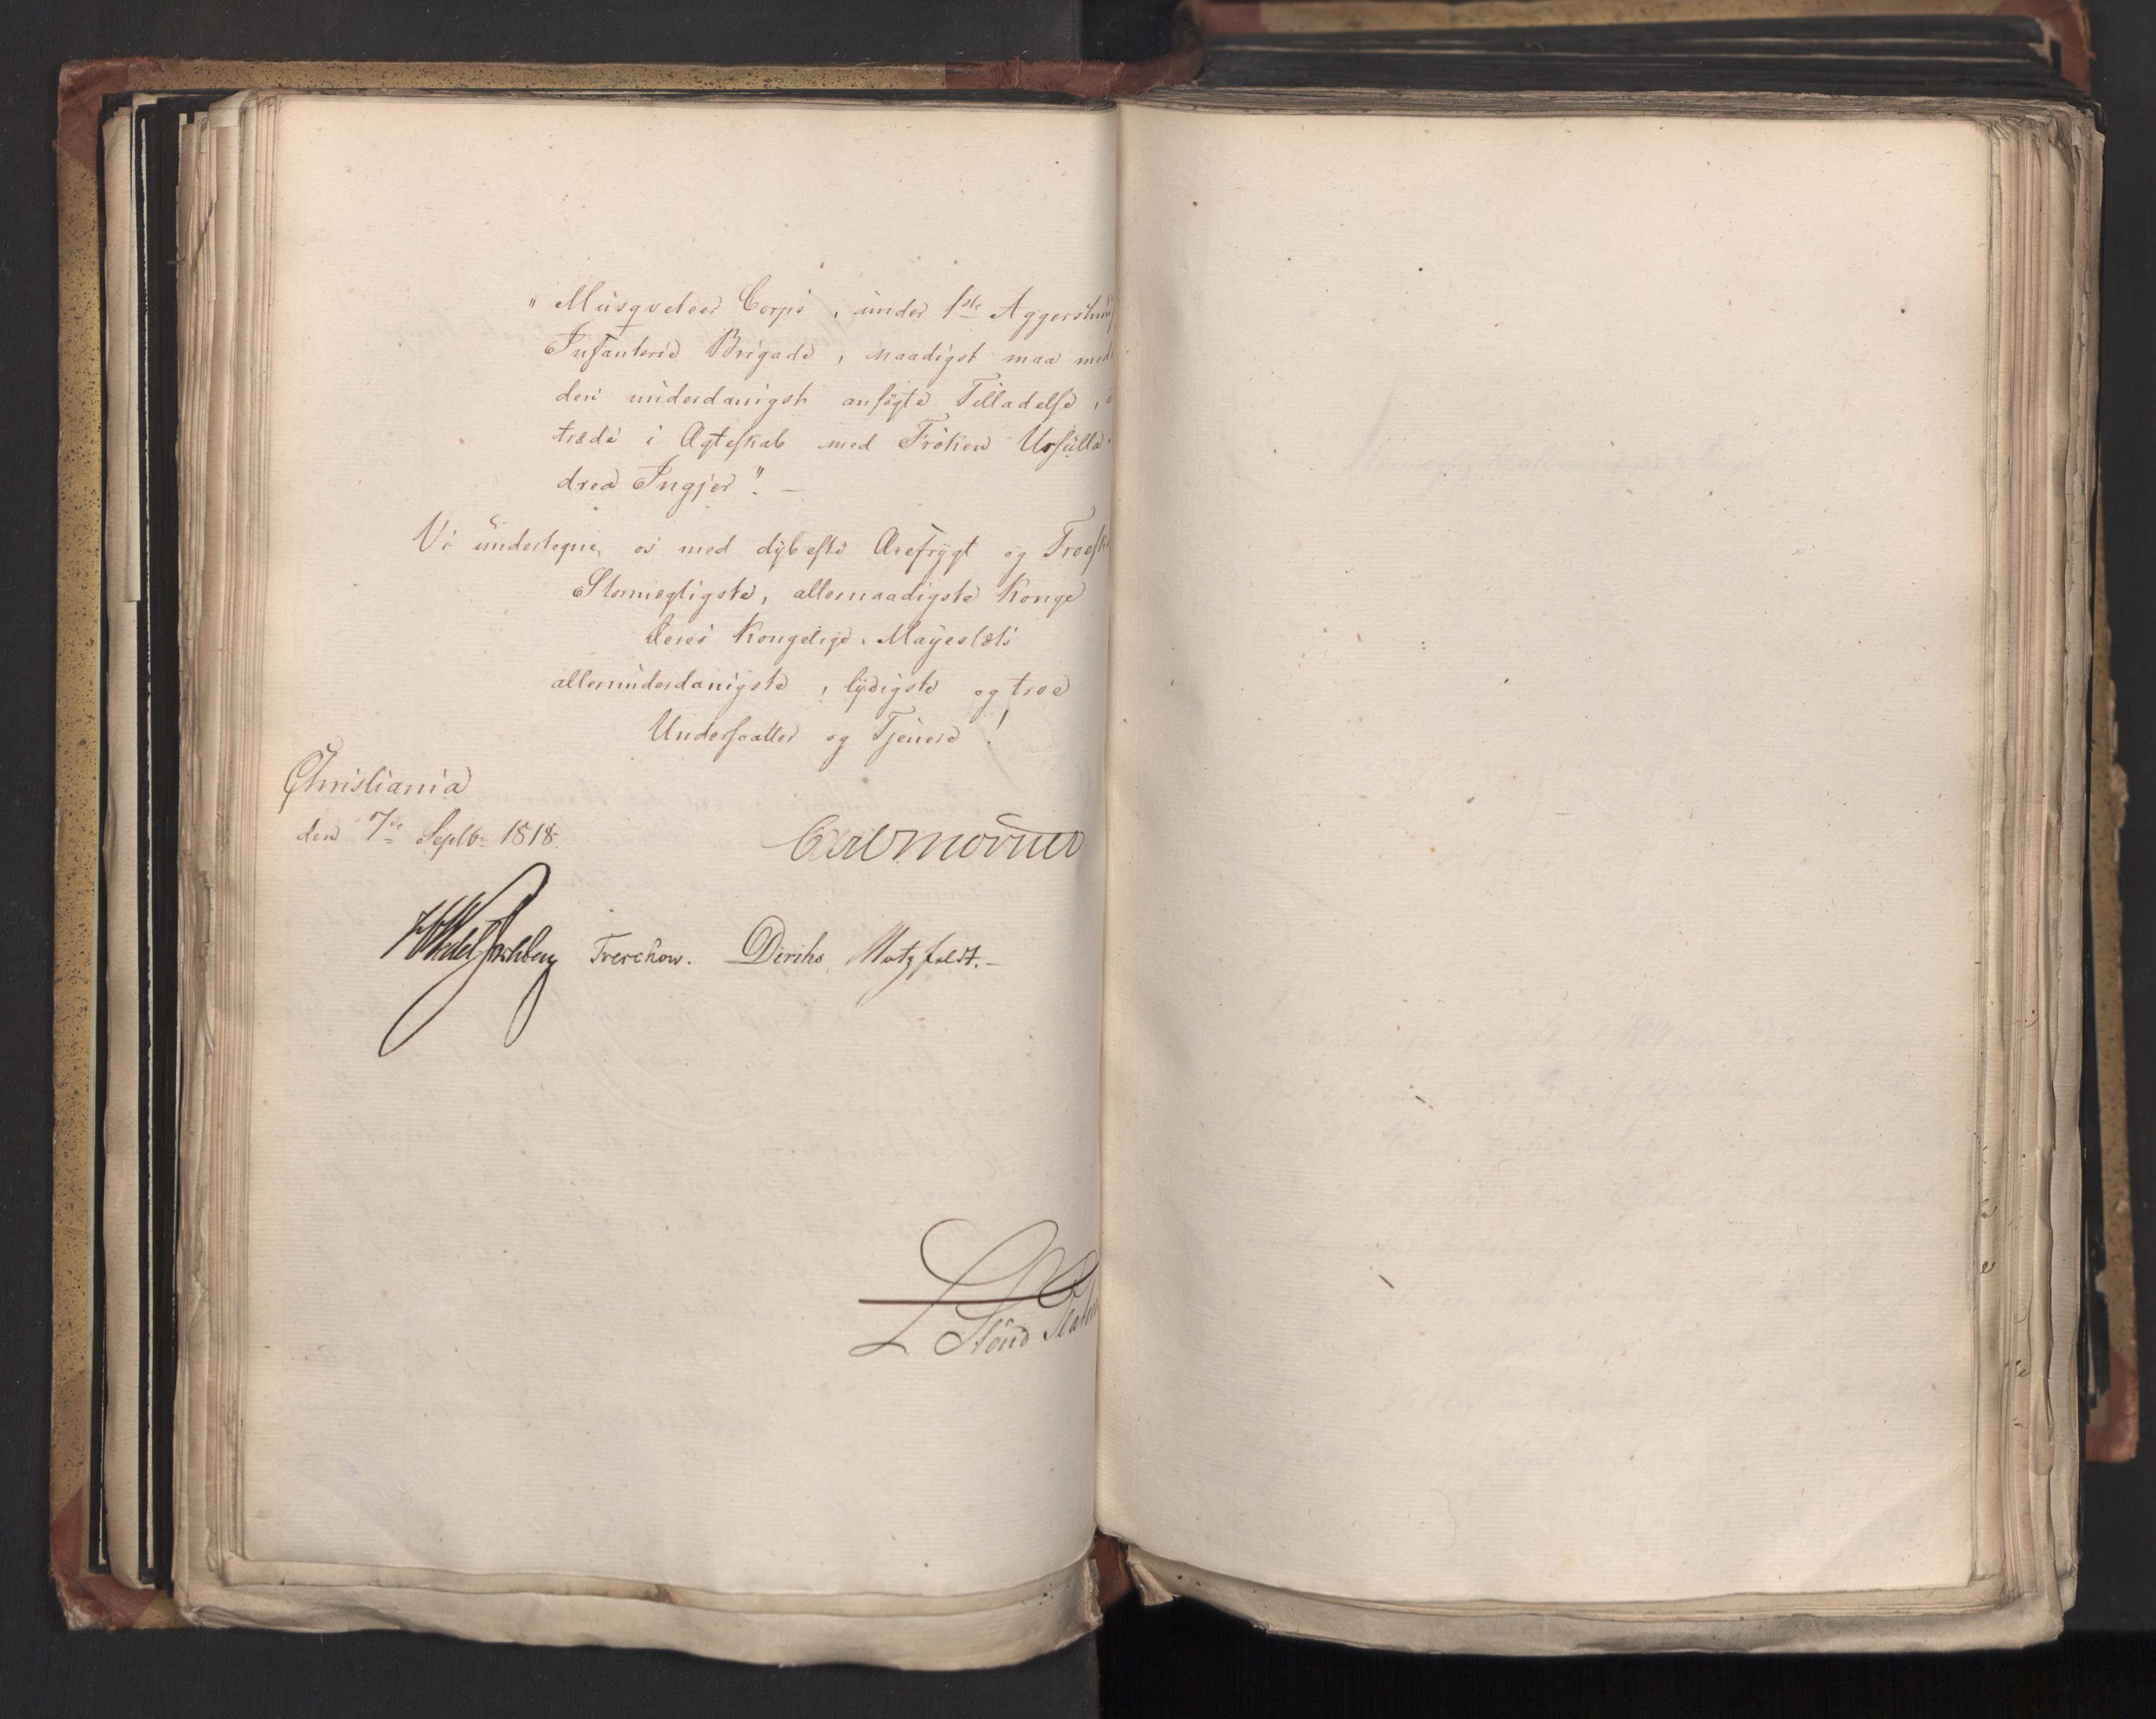 " Musqveteer Corps, under 1ste Aggershuus
Infanterie Brigade, naadigst maa med
den underdanigst ansøgte Tilladelse,
træde i Ægteskab med Frøken Ursulla
drea Ingjer". —
Vi undertegne os med dybeste Ærefrygt og Troesk
Stormægtigste, allernaadigste Konge
Deres Kongelige Mayestæts
allerunderdanigste, lydigste og troe
Undersaatter og Tjenere!
Christiania
den 7de Septbr 1818.
Carl Mörner
HWedel Jarlsberg Treschow. Diriks Motzfeldt. —